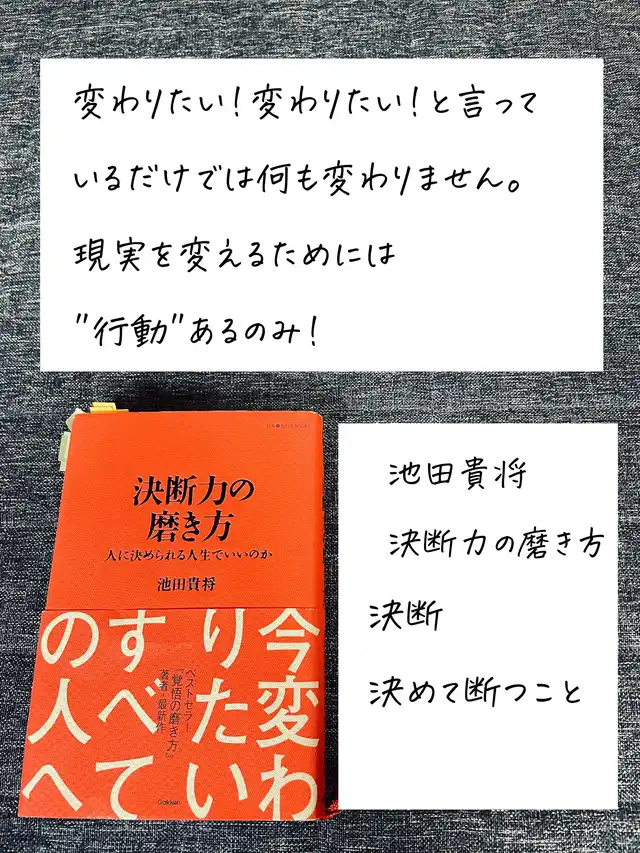 変わりたい!変わりたい!と言って
いるだけでは何も変わりません。
現実を変えるためには
"行動"あるのみ!
決断力の
磨き方
人に決められる人生でいいのか
池田貴将
今変わ
りたい
すべて
の人へ
ベストセラー
『覚悟の磨き方』の
著者・最新作
Gakken
池田貴将
決断力の磨き方
決断
決めて断つこと